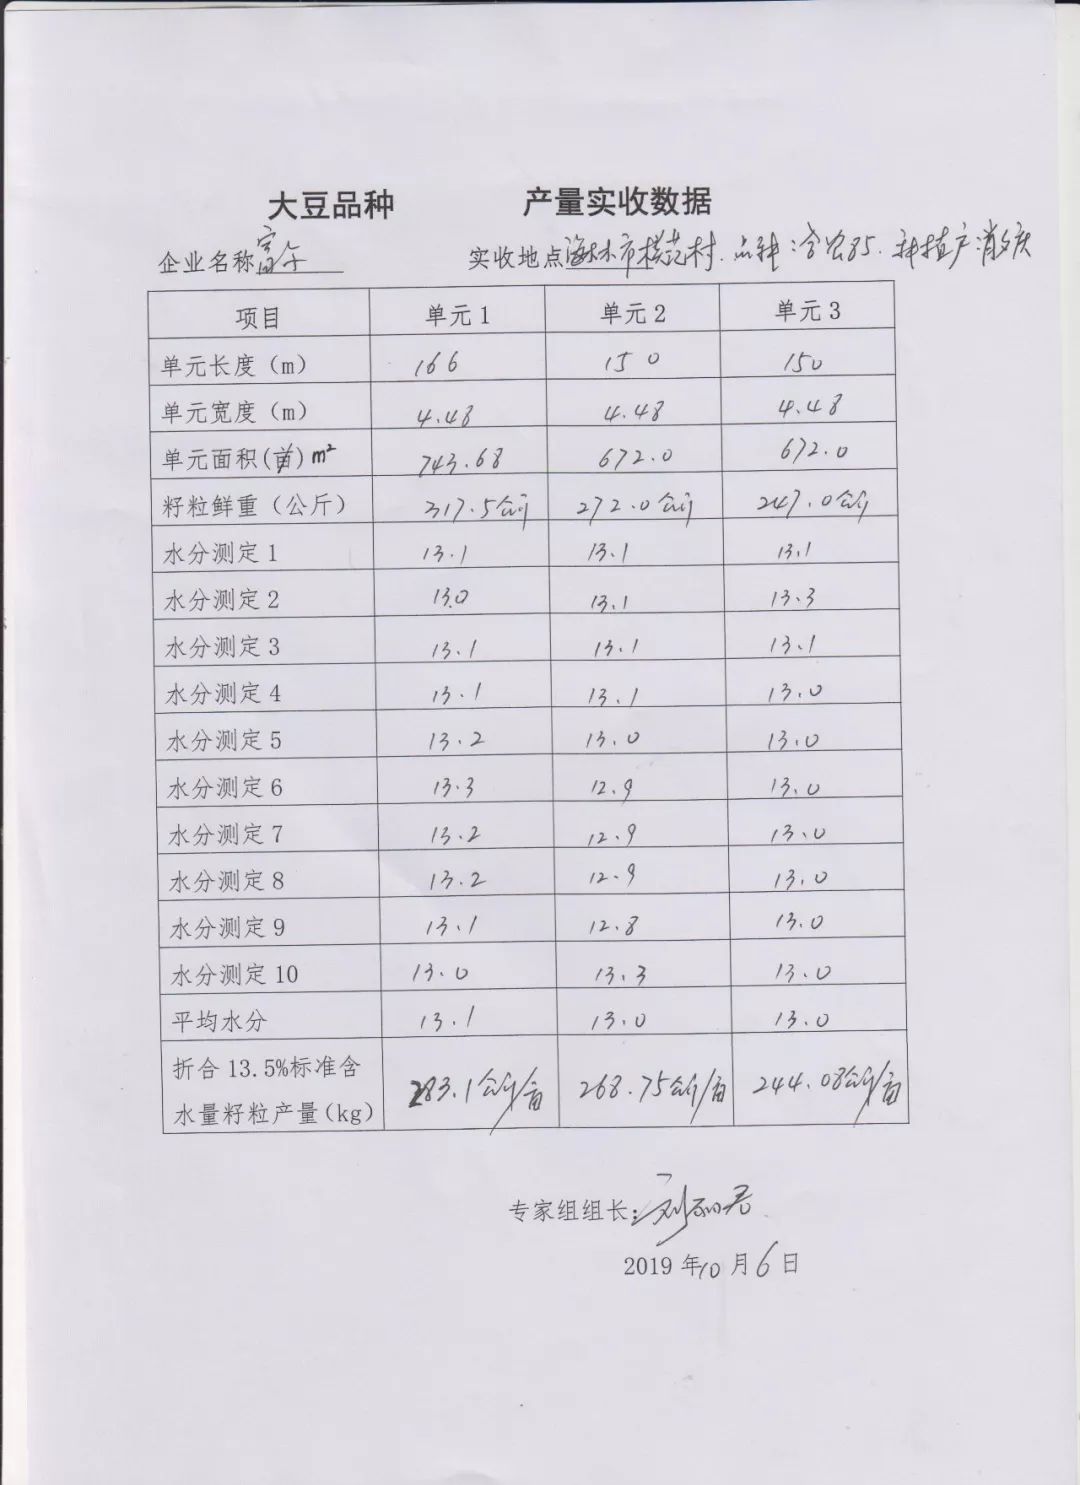 大豆品种 产量实收数据
企业名称富尔 实收地点海林市模范村. 品种:合农85. 种植户肖庆
项目 单元1 单元2 单元3
单元长度（m） 166 150 150
单元宽度（m） 4.48 4.48 4.48
单元面积(亩) m² 743.68 672.0 672.0
籽粒鲜重（公斤） 317.5公斤 272.0公斤 247.0公斤
水分测定1 13.1 13.1 13.1
水分测定2 13.0 13.1 13.3
水分测定3 13.1 13.1 13.1
水分测定4 13.1 13.1 13.0
水分测定5 13.2 13.0 13.0
水分测定6 13.3 12.9 13.0
水分测定7 13.2 12.9 13.0
水分测定8 13.2 12.9 13.0
水分测定9 13.1 12.8 13.0
水分测定10 13.0 13.3 13.0
平均水分 13.1 13.0 13.0
折合13.5%标准含
水量籽粒产量（kg） 283.1公斤/亩 268.75公斤/亩 244.08公斤/亩
专家组组长:刘丽君
2019年10月6日